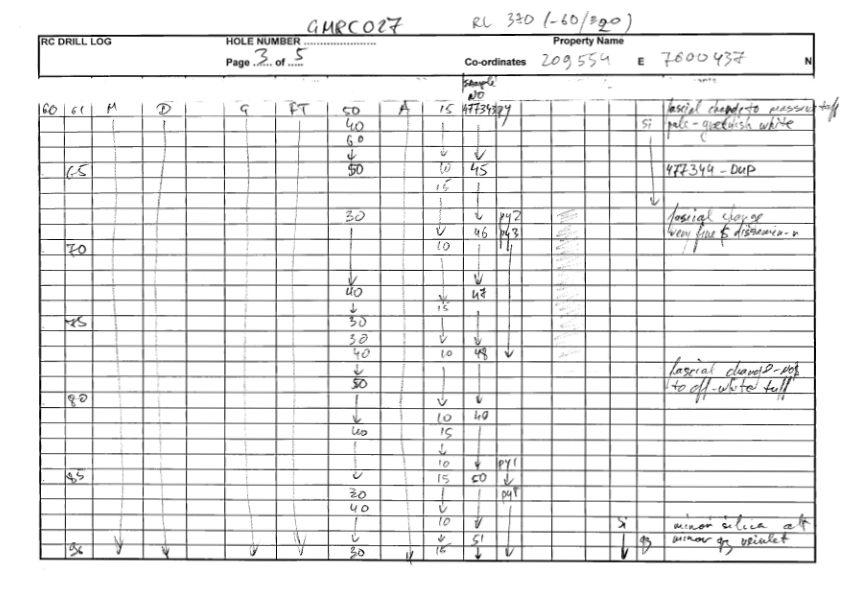 GMRC027 RL 370 (-60/320)
RC DRILL LOG HOLE NUMBER ........................ Property Name
Page ..3.. of ..5.. Co-ordinates 209554 E 7600437 N
Sample
NO
60 61 M D G FT 50 A 15 477343 fascial change to massive tuff
40 Si pale - white
60
65 50 10 45 477344 - DUP
15
30 py2 fascial change
46 py3 very fine
70 10
40 47
15
75 30
30
40 10 48
fascial change - not
50 to off-white tuff
80
10 49
40 15
10 py1
85 15 50
20 py
40
10 Si minor silica alt
51 qz minor qz veinlet
30 15